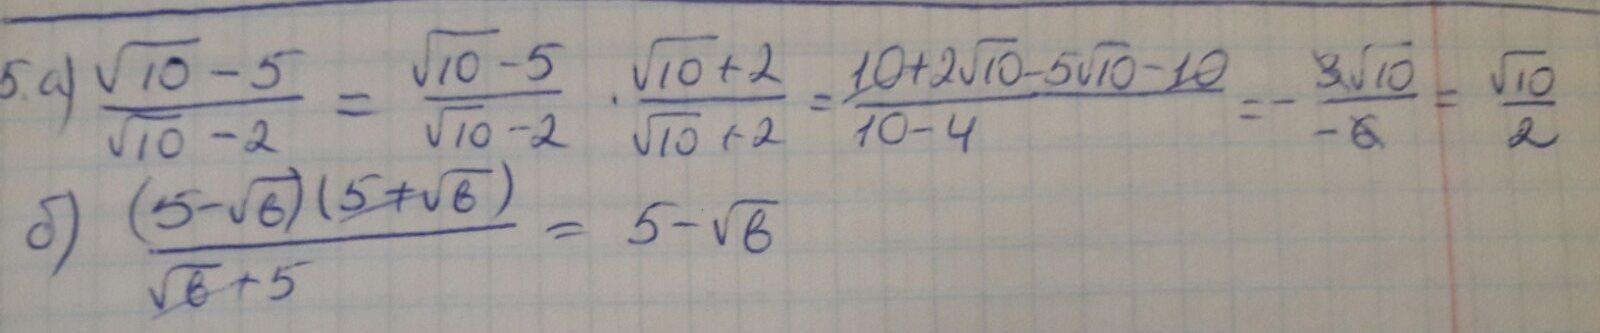 5.а) (√10 - 5)/(√10 - 2) = (√10 - 5)/(√10 - 2) · (√10 + 2)/(√10 + 2) = (10 + 2√10 - 5√10 - 10)/(10 - 4) = - (3√10)/(-6) = √10/2
б) ((5 - √6)(5 + √6))/(√6 + 5) = 5 - √6